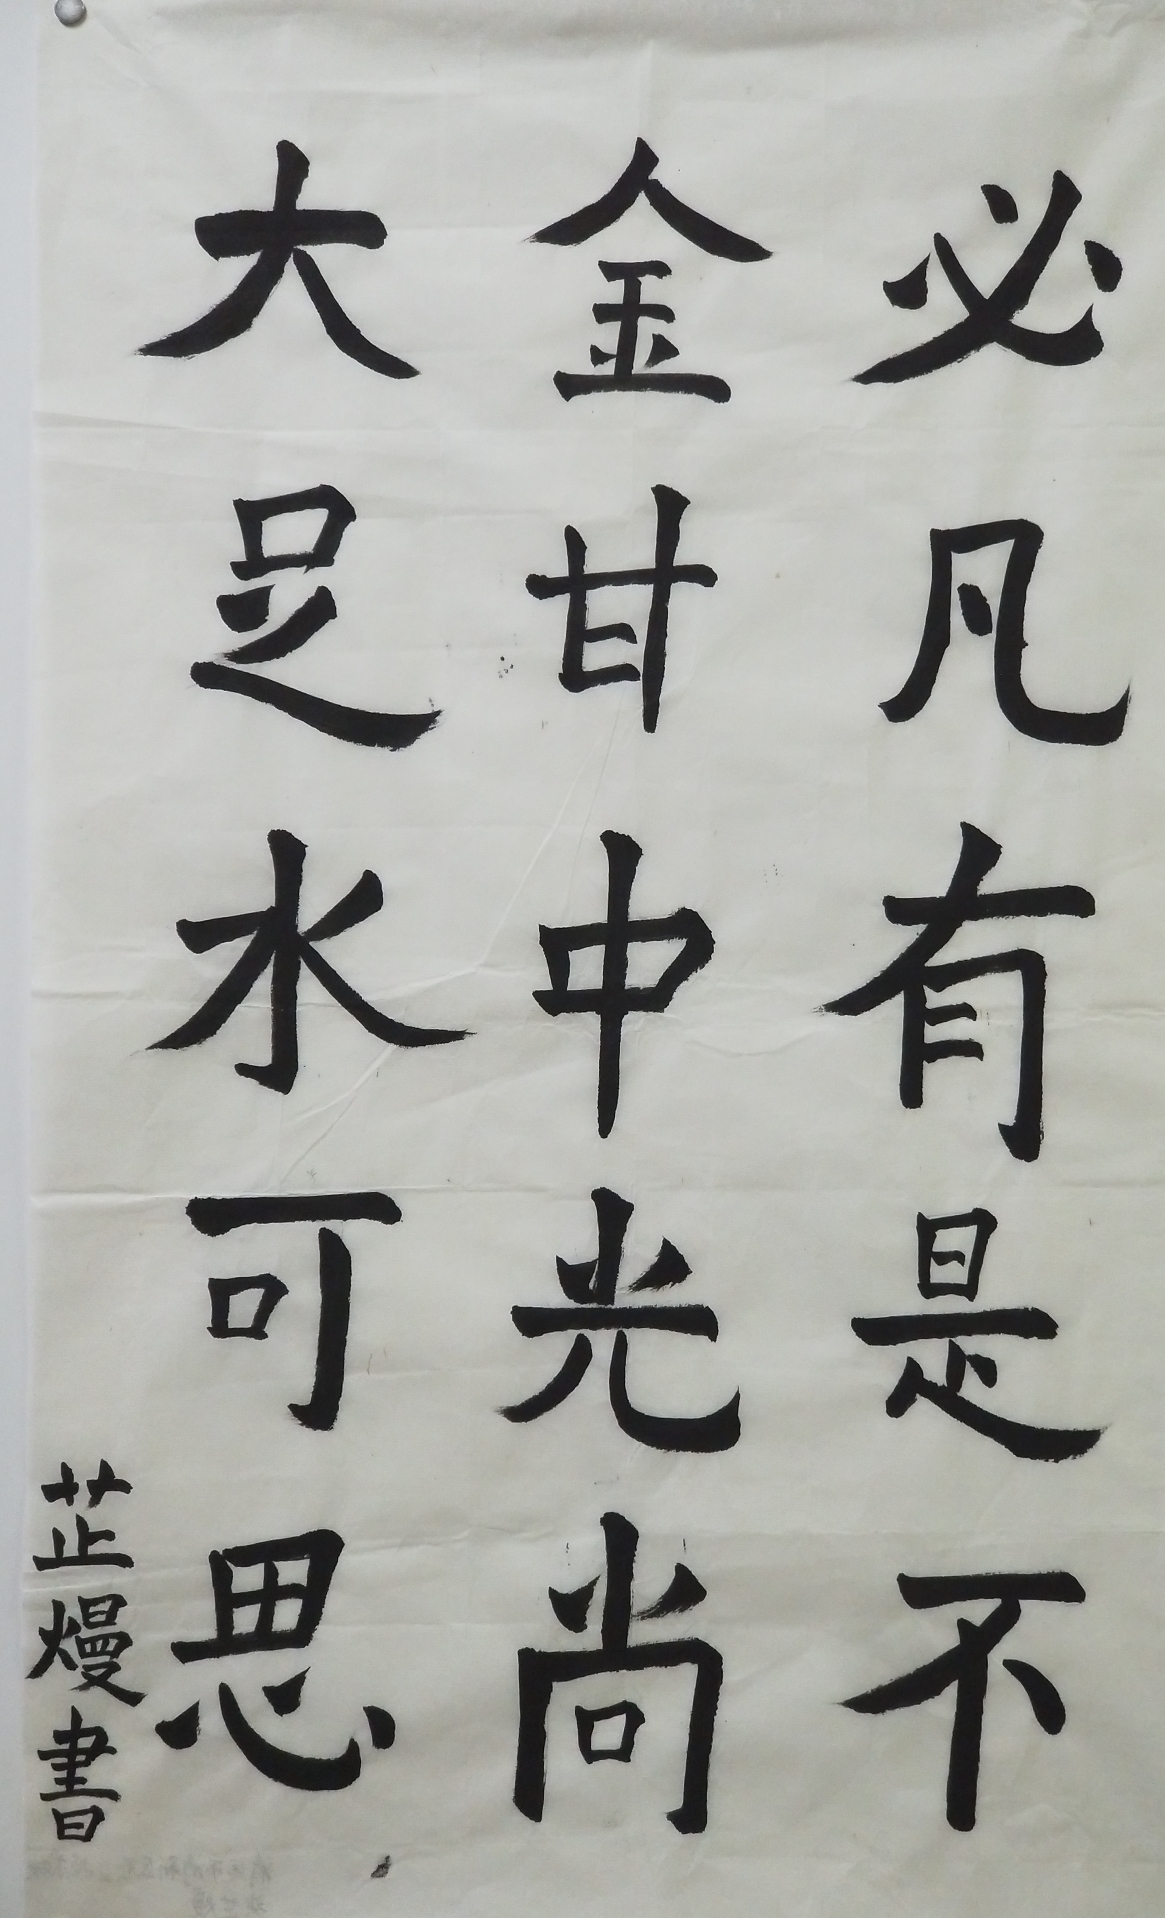 必凡有是不
金甘中光尚
大足水可思
芷熳書